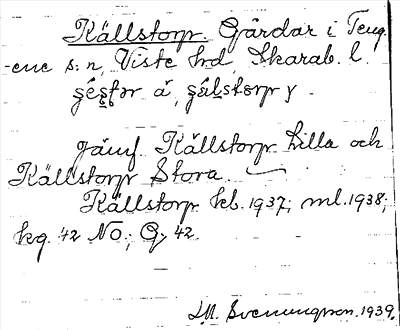 Källstorp. Gårdar i Teng
-ene s:n, Viste hd, Skarab. l.
Jämf. Källstorp Lilla och
Källstorp Stora.
Källstorp kb. 1937; ml. 1938;
kg. 42 NO; G 42.
I.M. Svenungsson. 1939.